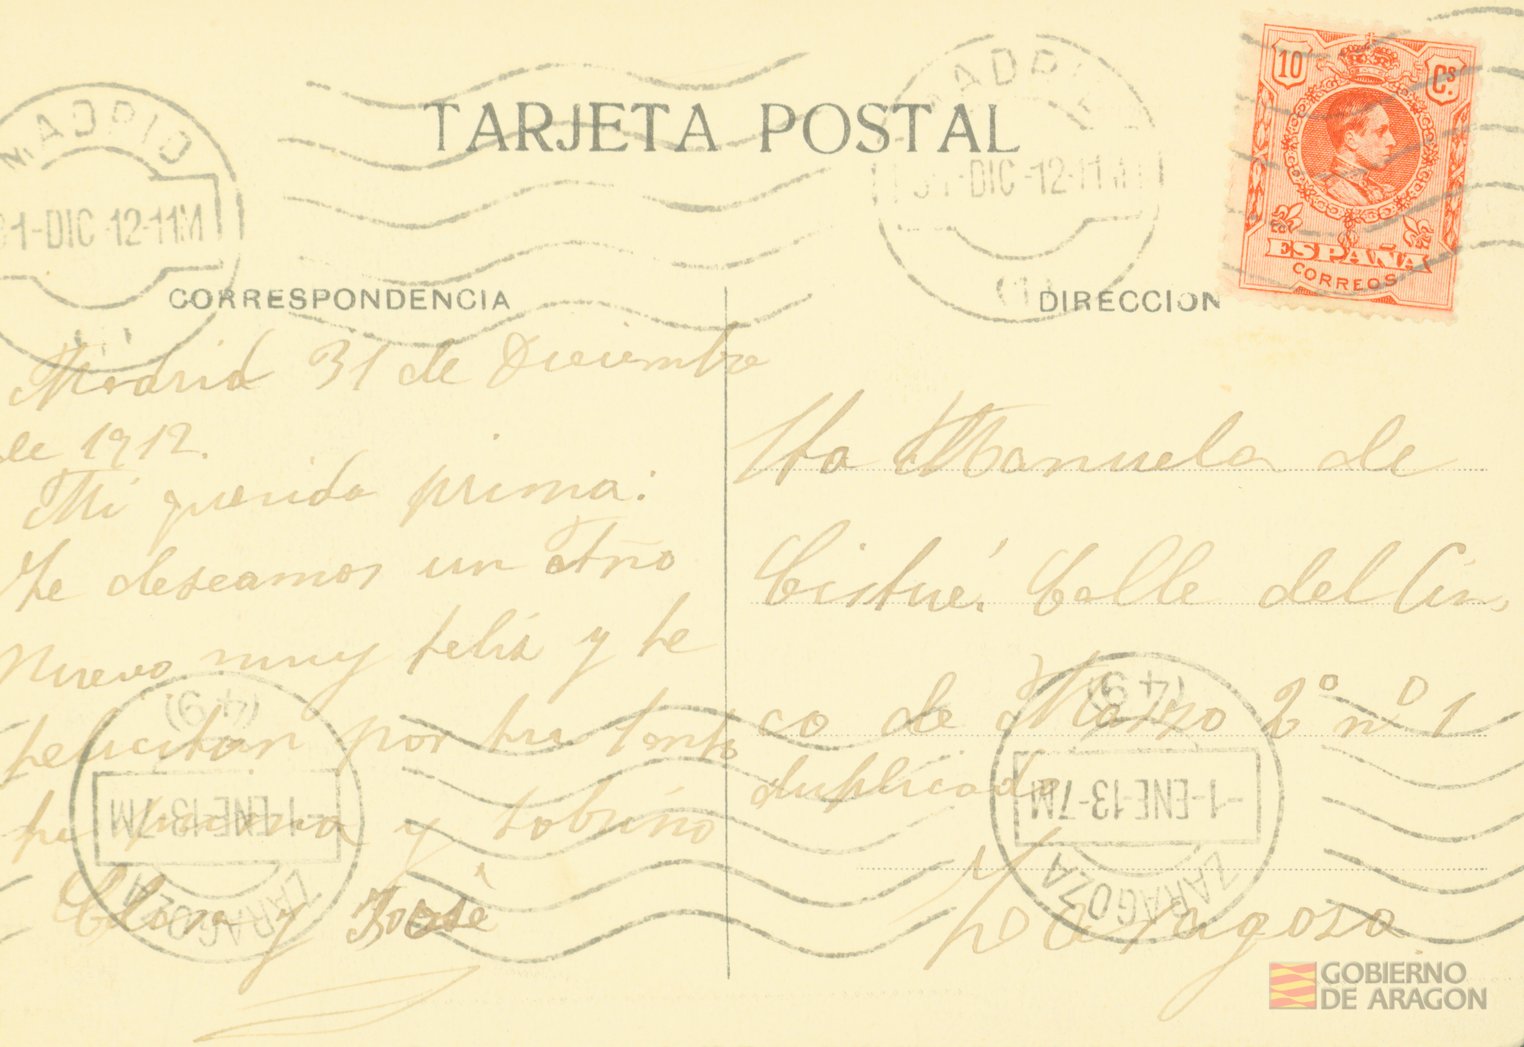 TARJETA POSTAL
MADRID
31-DIC-12-11M
MADRID
31-DIC-12-11M
(1)
10 Cs.
ESPAÑA
CORREOS
CORRESPONDENCIA
Madrid 31 de Diciembre
de 1912.
Mi querida prima:
te deseamos un Año
Nuevo muy felís y te
felicitan por tu santo
tu prima y sobrino
Clara y José
DIRECCIÓN
Sta Manuela de
Cistué. Calle del Cin,
co de Marzo 2º nº 1
duplicado
Zaragosa
(49)
1-ENE-13-7M
ZARAGOZA
(49)
1-ENE-13-7M
ZARAGOZA
GOBIERNO
DE ARAGON